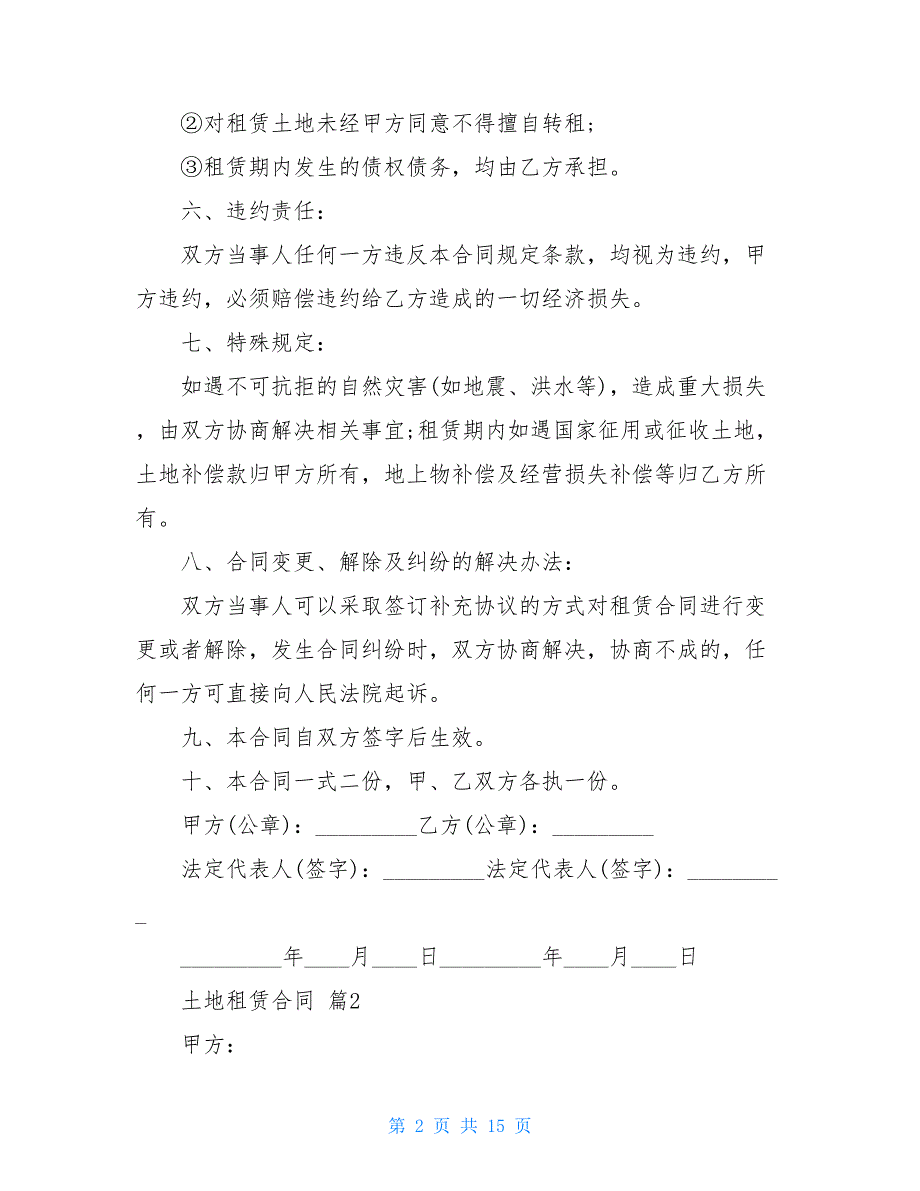 ②对租赁土地未经甲方同意不得擅自转租;
③租赁期内发生的债权债务，均由乙方承担。
六、违约责任：
双方当事人任何一方违反本合同规定条款，均视为违约，甲
方违约，必须赔偿违约给乙方造成的一切经济损失。
七、特殊规定：
如遇不可抗拒的自然灾害(如地震、洪水等)，造成重大损失
，由双方协商解决相关事宜;租赁期内如遇国家征用或征收土地，
土地补偿款归甲方所有，地上物补偿及经营损失补偿等归乙方所
有。
八、合同变更、解除及纠纷的解决办法：
双方当事人可以采取签订补充协议的方式对租赁合同进行变
更或者解除，发生合同纠纷时，双方协商解决，协商不成的，任
何一方可直接向人民法院起诉。
九、本合同自双方签字后生效。
十、本合同一式二份，甲、乙双方各执一份。
甲方(公章)：_________乙方(公章)：_________
法定代表人(签字)：_________法定代表人(签字)：________
_
_________年____月____日_________年____月____日
土地租赁合同 篇2
甲方：
第 2 页 共 15 页